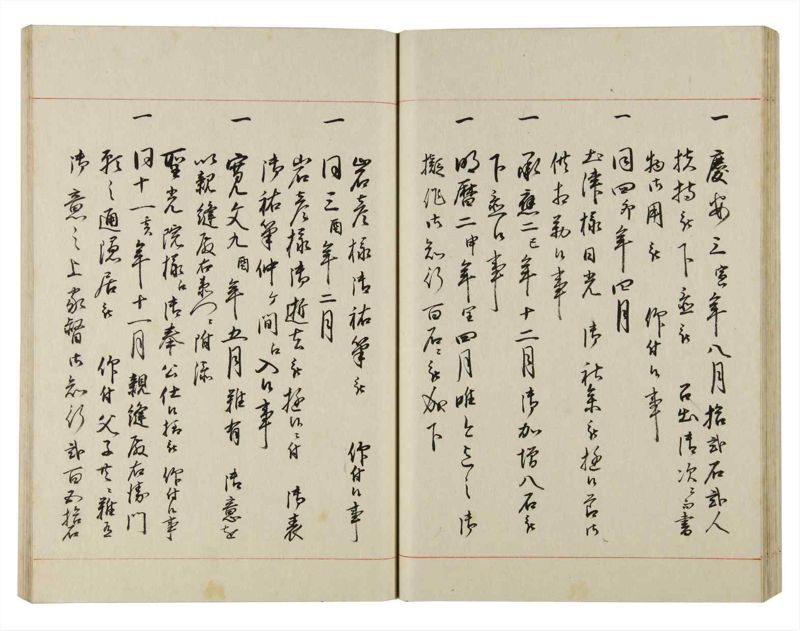 一 慶安三寅年八月拾弐石弐人
扶持被下置被 召出御次ニ而書
物御用被 仰付候事
一 同四卯年四月
土津様日光 御社参被遊候節御
供相勤候事
一 承應二巳年十二月御加増八石被
下置候事
一 明暦二申年四月唯今迄之御
擬作御知行百石ニ被成下
岩彦様御祐筆被 仰付候事
一 同三酉年二月
岩彦様御逝去被遊候ニ付 御表
御祐筆仲ケ間江入候事
一 寛文九酉年五月難有 御意を
以親縫殿右衛門ニ附添
聖光院様江御奉公仕候様被 仰付候事
一 同十一亥年十一月親縫殿右衛門
願之通隠居被 仰付父子共ニ難有
御意之上家督御知行弐百五拾石